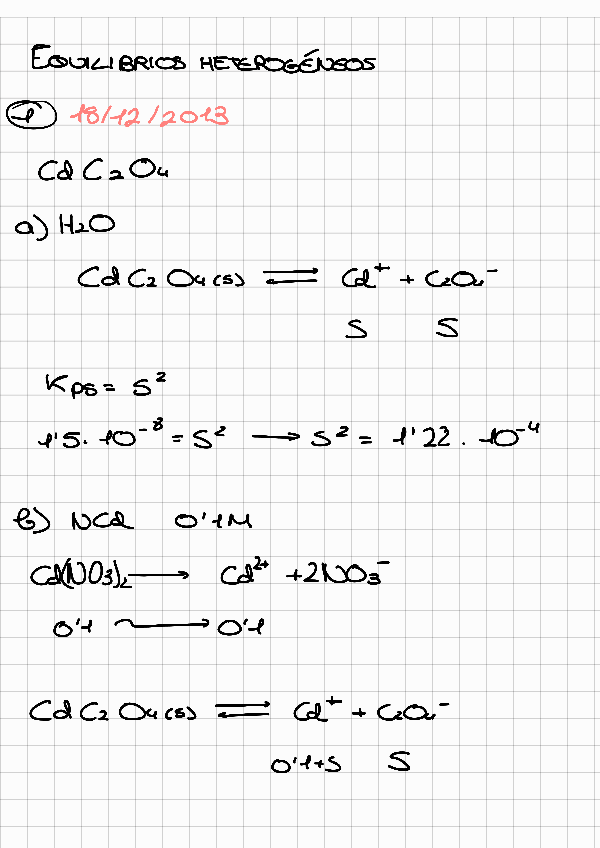 EQUILIBRIOS HETEROGÉNEOS
1 18/12/2013
CdC2O4
a) H2O
CdC2O4(s) ⇌ Cd⁺ + C2O4⁻
S S
Kps = S²
1'5·10⁻⁸ = S² → S² = 1'22·10⁻⁴
b) NCd 0'1M
Cd(NO3)2 → Cd²⁺ + 2NO3⁻
0'1 → 0'1
CdC2O4(s) ⇌ Cd⁺ + C2O4⁻
0'1+S S